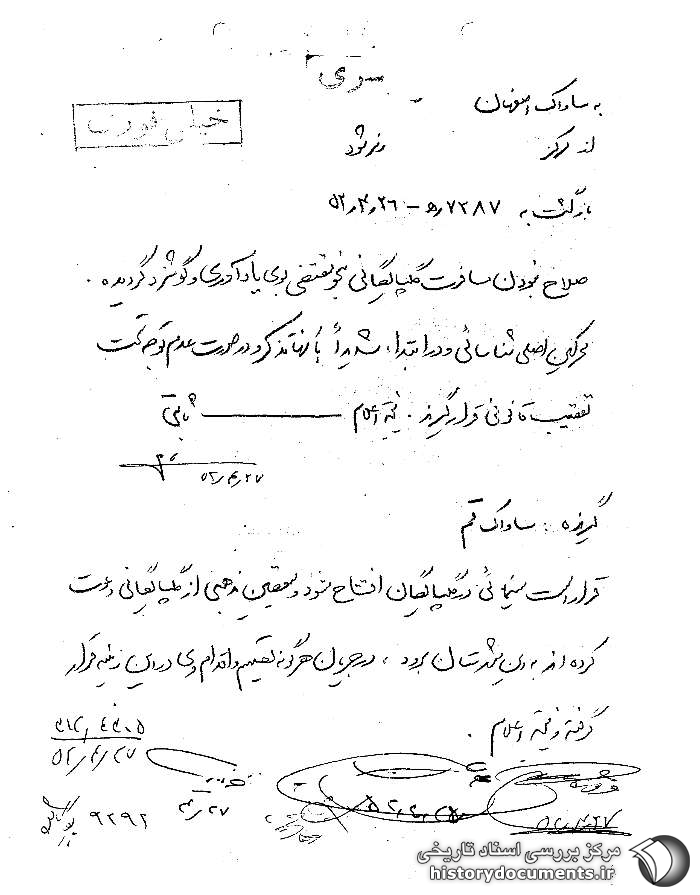 سری
خیلی فوری
به ساواک اصفهان
از مرکز رمز شود
بازگشت به ۷۲۸۷/ه‍ - ۵۲٫۴٫۲۶
صلاح نبودن مسافرت گلپایگانی بنحو مقتضی بوی یادآوری و گوشزد گردیده .
محرکین اصلی شناسائی و در ابتداء شدیداً بآنها تذکر و در صورت عدم توجه تحت
تعقیب قانونی قرار گیرند . نتیجه اعلام ثابتی
۵۲٫۴٫۲۷
گیرنده : ساواک قم
قرار است سینمائی در گلپایگان افتتاح شود و متعصبین مذهبی از گلپایگانی دعوت
کرده اند به این شهرستان برود ، در جریان هرگونه تصمیم و اقدام وی در این زمینه قرار
گرفته و نتیجه اعلام .
۳۱۲٫۴۳۰۵
۵۲٫۴٫۲۷
۴٫۲۷
۵۲٫۴٫۲۷
۹۲۹۲
مرکز بررسی اسناد تاریخی
historydocuments.ir